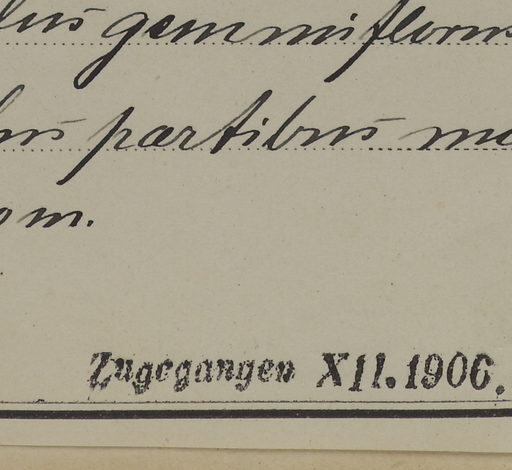 gemmiflorus
partibus
om.
Zugegangen XII. 1906.